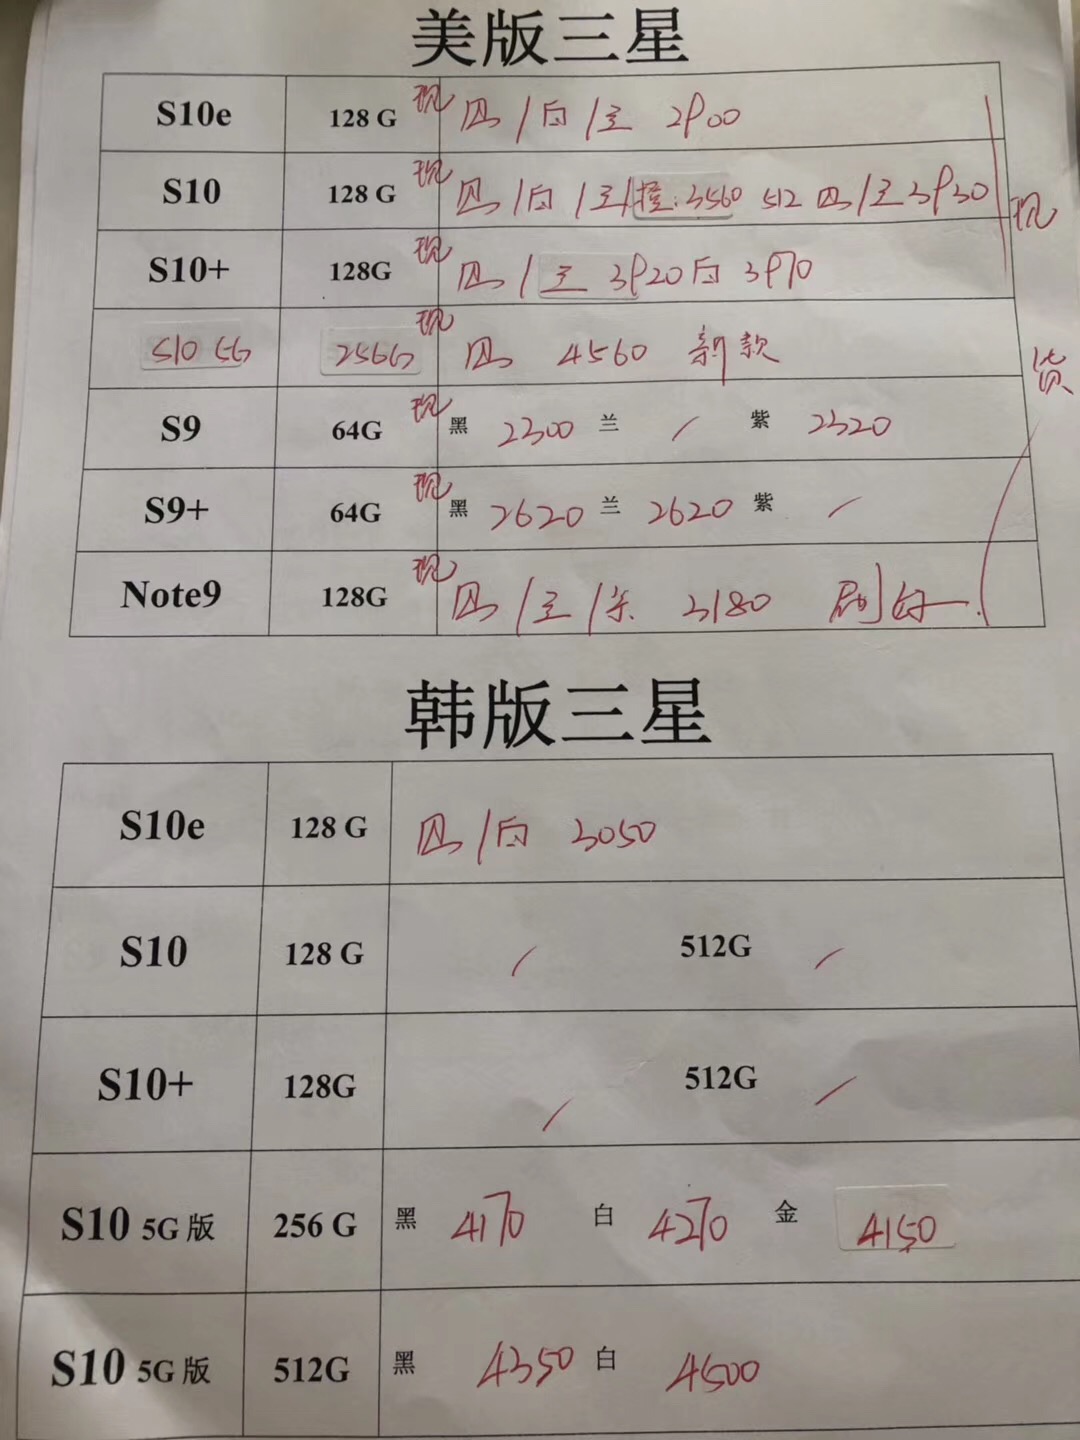 美版三星
S10e 128 G 现 黑/白/兰 2900
S10 128 G 现 黑/白/兰/橙: 3560 512 黑/兰 3930
S10+ 128G 现 黑/兰 3920 白 3970
S10 5G 256G 现 黑 4560 新款
S9 64G 现 黑 2300 兰 / 紫 2320
S9+ 64G 现 黑 2620 兰 2620 紫 /
Note9 128G 现 黑/兰/紫 3180 刷好
现
货
韩版三星
S10e 128 G 黑/白 3050
S10 128 G / 512G /
S10+ 128G / 512G /
S10 5G 版 256 G 黑 4170 白 4270 金 4150
S10 5G 版 512G 黑 4350 白 4500